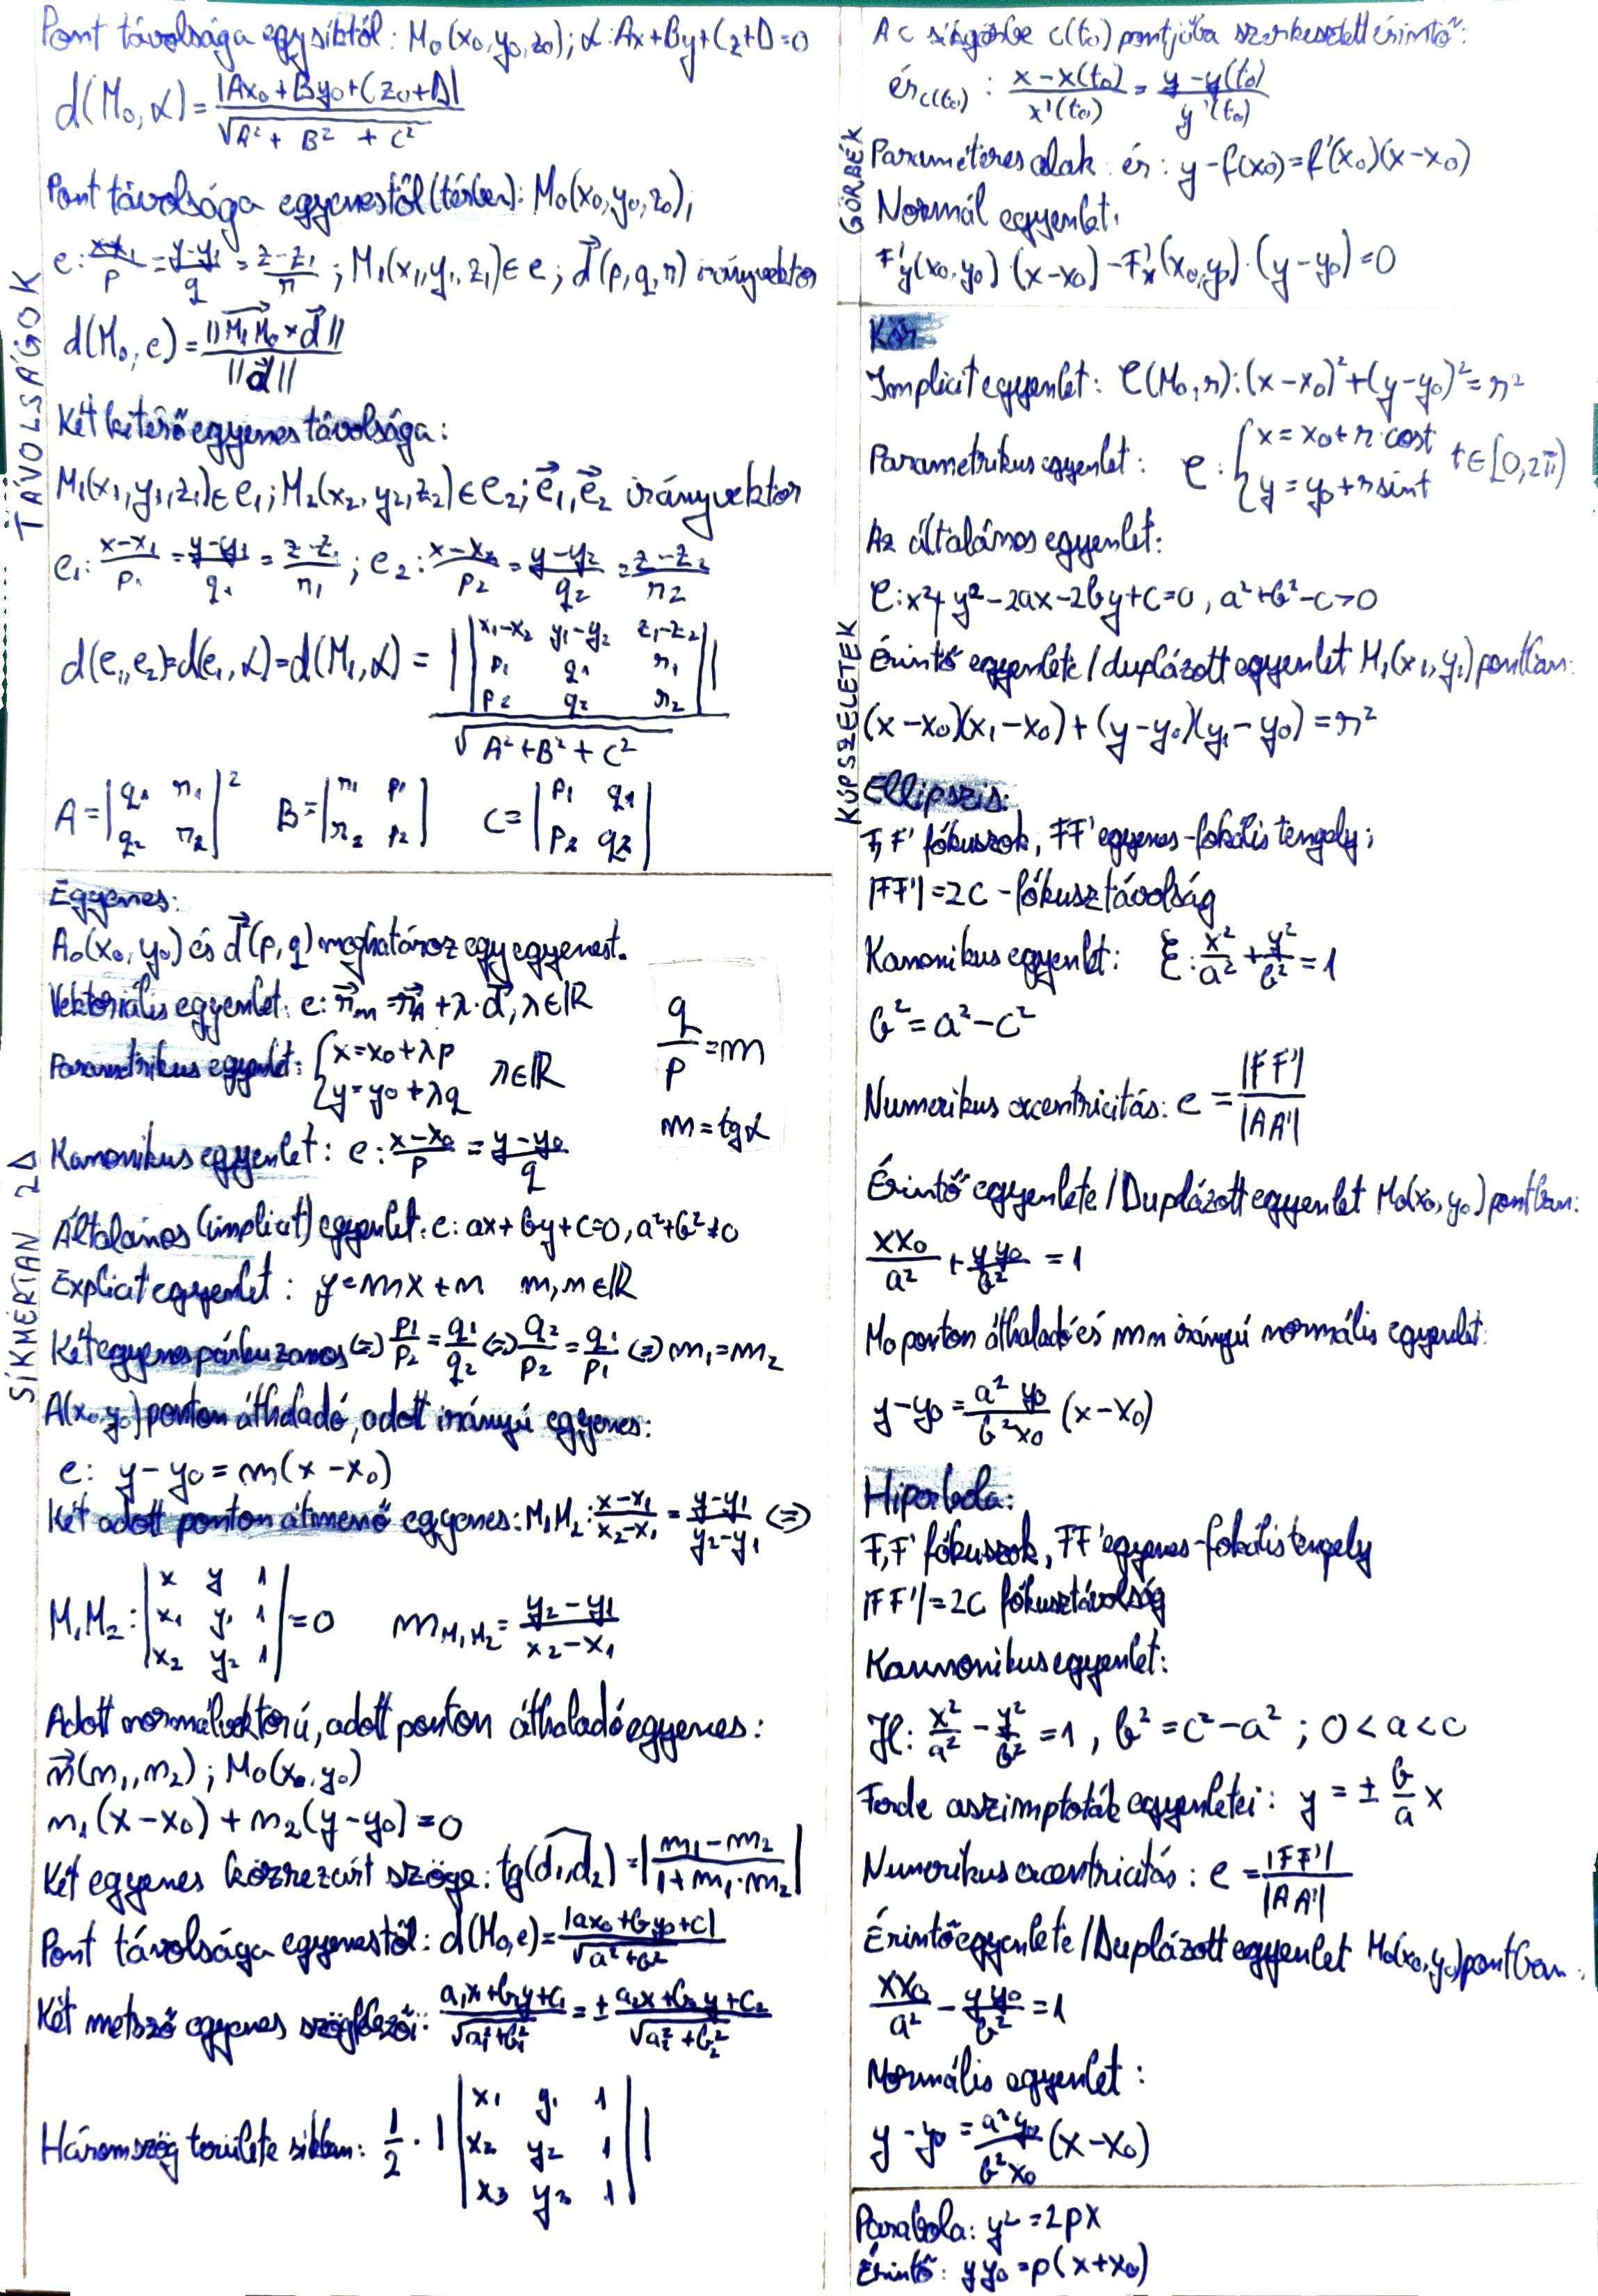 TÁVOLSÁGOK
Pont távolsága egy síktól: M₀(x₀,y₀,z₀); α: Ax+By+Cz+D=0
d(M₀,α) = |Ax₀+By₀+Cz₀+D| / √(A²+B²+C²)
Pont távolsága egyenestől (térben): M₀(x₀,y₀,z₀);
e: (x-x₁)/p = (y-y₁)/q = (z-z₁)/r ; M₁(x₁,y₁,z₁)∈e; d⃗(p,q,r) irányvektor
d(M₀,e) = ||M₁M₀⃗ × d⃗|| / ||d⃗||
Két kitérő egyenes távolsága:
M₁(x₁,y₁,z₁)∈e₁; M₂(x₂,y₂,z₂)∈e₂; e⃗₁,e⃗₂ irányvektor
e₁: (x-x₁)/p₁ = (y-y₁)/q₁ = (z-z₁)/r₁ ; e₂: (x-x₂)/p₂ = (y-y₂)/q₂ = (z-z₂)/r₂
d(e₁,e₂)=d(e₁,α)=d(M₁,α) = | |x₁-x₂ y₁-y₂ z₁-z₂; p₁ q₁ r₁; p₂ q₂ r₂| | / √(A²+B²+C²)
A=|q₁ r₁; q₂ r₂|² B=|r₁ p₁; r₂ p₂| C=|p₁ q₁; p₂ q₂|
SÍKMÉRTAN 2Δ
Egyenes:
A₀(x₀,y₀) és d⃗(p,q) meghatároz egy egyenest.
Vektoriális egyenlet: e: r⃗m = r⃗A + λ·d⃗, λ∈ℝ
Parametrikus egyenlet: {x=x₀+λp; y=y₀+λq λ∈ℝ
q/p = m
m = tgα
Kanonikus egyenlet: e: (x-x₀)/p = (y-y₀)/q
Általános (implicit) egyenlet: e: ax+by+c=0, a²+b²≠0
Explicit egyenlet: y=mx+n m,n∈ℝ
Két egyenes párhuzamos ⇔ p₁/p₂ = q₁/q₂ ⇔ q₂/p₂ = q₁/p₁ ⇔ m₁=m₂
A(x₀,y₀) ponton áthaladó, adott irányú egyenes:
e: y-y₀ = m(x-x₀)
Két adott ponton átmenő egyenes: M₁M₂: (x-x₁)/(x₂-x₁) = (y-y₁)/(y₂-y₁) ⇔
M₁M₂: |x y 1; x₁ y₁ 1; x₂ y₂ 1| = 0 m_M₁M₂ = (y₂-y₁)/(x₂-x₁)
Adott normálvektorú, adott ponton áthaladó egyenes:
n⃗(n₁,n₂); M₀(x₀,y₀)
n₁(x-x₀) + n₂(y-y₀) = 0
Két egyenes közrezárt szöge: tg(d₁,d₂) = |(m₁-m₂)/(1+m₁·m₂)|
Pont távolsága egyenestől: d(M₀,e) = |ax₀+by₀+c| / √(a²+b²)
Két metsző egyenes szögfelezői: (a₁x+b₁y+c₁)/√(a₁²+b₁²) = ± (a₂x+b₂y+c₂)/√(a₂²+b₂²)
Háromszög területe síkban: 1/2 · | |x₁ y₁ 1; x₂ y₂ 1; x₃ y₃ 1| |
GÖRBÉK
A c síkgörbe c(t₀) pontjába szerkesztett érintő:
ér_c(t₀): (x-x(t₀))/x'(t₀) = (y-y(t₀))/y'(t₀)
Paraméteres alak ér: y-f(x₀)=f'(x₀)(x-x₀)
Normál egyenlet:
F'y(x₀,y₀)·(x-x₀) - F'x(x₀,y₀)·(y-y₀)=0
KÚPSZELETEK
Kör
Implicit egyenlet: C(M₀,r): (x-x₀)²+(y-y₀)²=r²
Parametrikus egyenlet: C: {x=x₀+r·cost; y=y₀+r sint t∈[0,2π)
Az általános egyenlet:
C: x²+y²-2ax-2by+c=0, a²+b²-c>0
Érintő egyenlete / duplázott egyenlet M₁(x₁,y₁) pontban:
(x-x₀)(x₁-x₀)+(y-y₀)(y₁-y₀)=r²
Ellipszis:
F,F' fókuszok, FF' egyenes-fokális tengely;
|FF'|=2c - fókusztávolság
Kanonikus egyenlet: Ɛ: x²/a² + y²/b² = 1
b²=a²-c²
Numerikus excentricitás: e = |FF'|/|AA'|
Érintő egyenlete / Duplázott egyenlet M₀(x₀,y₀) pontban:
xx₀/a² + yy₀/b² = 1
M₀ ponton áthaladó és mn irányú normális egyenlet:
y-y₀ = a²y₀/b²x₀ (x-x₀)
Hiperbola:
F,F' fókuszok, FF' egyenes-fokális tengely
|FF'|=2c fókusztávolság
Kannonikus egyenlet:
H: x²/a² - y²/b² = 1, b²=c²-a² ; 0<a<c
Ferde aszimptoták egyenletei: y = ± b/a x
Numerikus excentricitás: e = |FF'|/|AA'|
Érintő egyenlete / Duplázott egyenlet M₀(x₀,y₀) pontban:
xx₀/a² - yy₀/b² = 1
Normális egyenlet:
y-y₀ = a²y₀/b²x₀ (x-x₀)
Parabola: y²=2px
Érintő: yy₀=p(x+x₀)